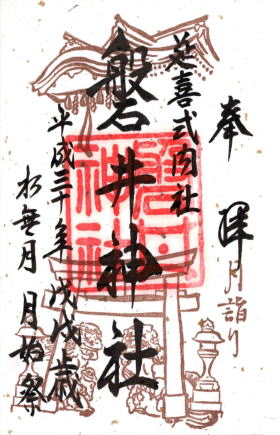 奉拝
月詣り
延喜式内社
磐井神社
磐井
神社
平成三十年 戊戌歳
水無月 月始祭